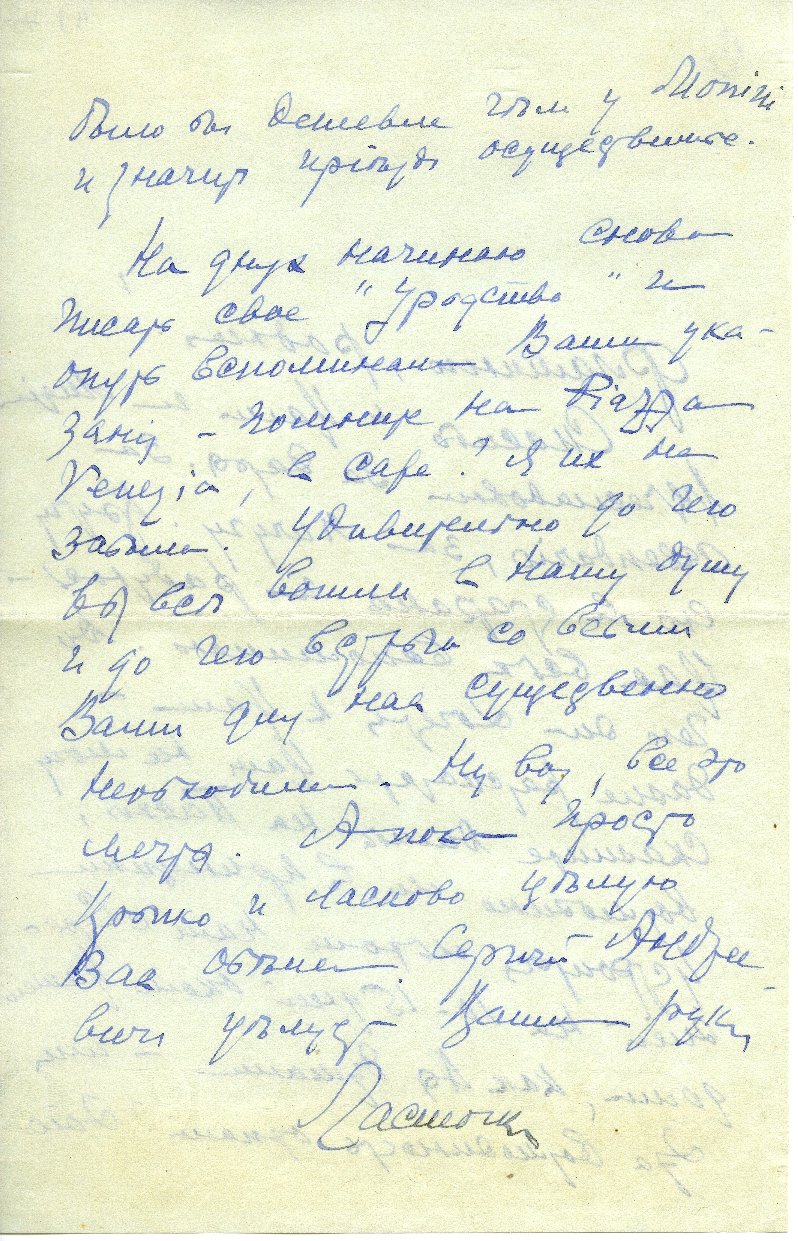 было бы дешевле чѣм у Monini
и значит приѣзд осуществите.
На днях начинаю снова
писать свое "Уродство" и
опять вспоминаю Ваши ука-
зания – помните на Piazza
Venezia, в Cafe? Я их не
забыла. Удивительно до чего
Вы всѣ вошли в нашу душу
и до чего встрѣчи со всѣми
Вами для нас существенно
необходимы. Ну вот, все это
мечты. А пока просто
крѣпко и ласково цѣлую
Вас обѣих. Сергѣй Андрее-
вич цѣлует Ваши руки
Ласточка